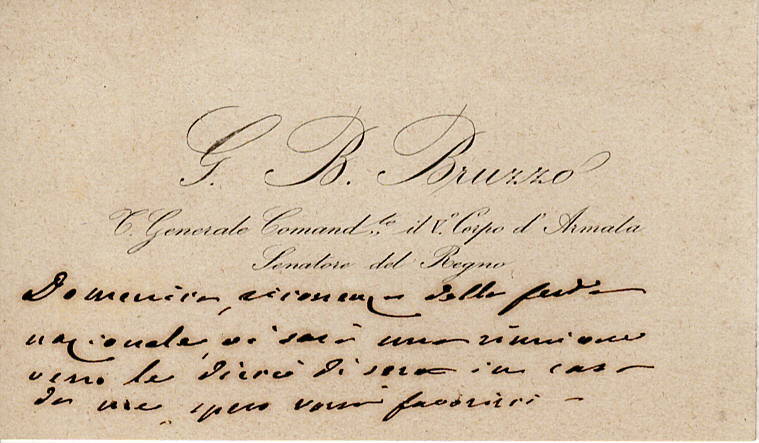 G. B. Bruzzo
T. Generale Comand.te il V.º Corpo d'Armata
Senatore del Regno
Domenica, ricorrenza della festa
nazionale, vi sarà una riunione
verso le dieci di sera in casa
da me, spero vorrà favorirci -